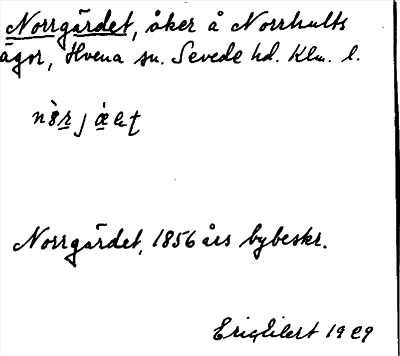 Norrgärdet, åker å Norrhults
ägor, Hvena sn. Sevede hd. Klm. l.
Norrgärdet, 1856 års bybeskr.
Eric Eilert 1929